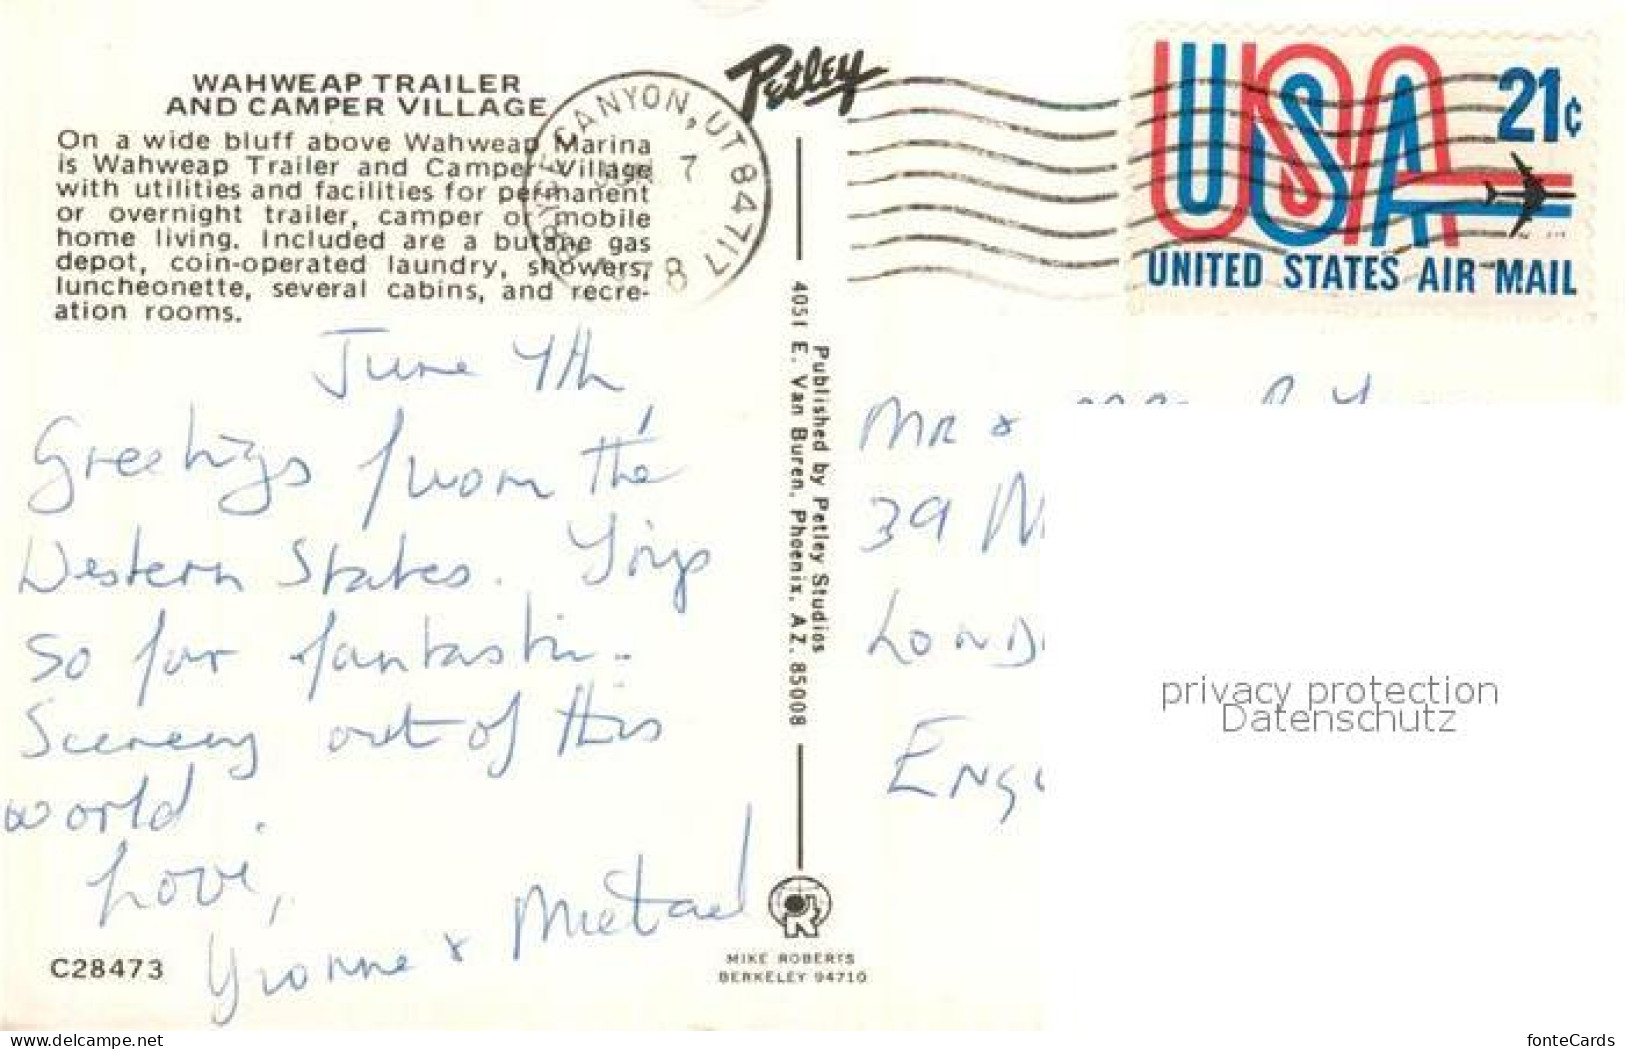 WAHWEAP TRAILER
AND CAMPER VILLAGE
On a wide bluff above Wahweap Marina
is Wahweap Trailer and Camper Village
with utilities and facilities for permanent
or overnight trailer, camper or mobile
home living. Included are a butane gas
depot, coin-operated laundry, showers,
luncheonette, several cabins, and recre-
ation rooms.
Petley
CANYON, UT 84717
7
USA
21c
UNITED STATES AIR MAIL
June 4th
Greetings from the
Western States.
So far fantastic..
Scenery out of this
world.
Love,
Yvonne &
C28473
Published by Petley Studios
4051 E. Van Buren, Phoenix, AZ. 85008
MIKE ROBERTS
BERKELEY 94710
MR &
39
LOND
ENG
privacy protection
Datenschutz
www.delcampe.net
fonteCards